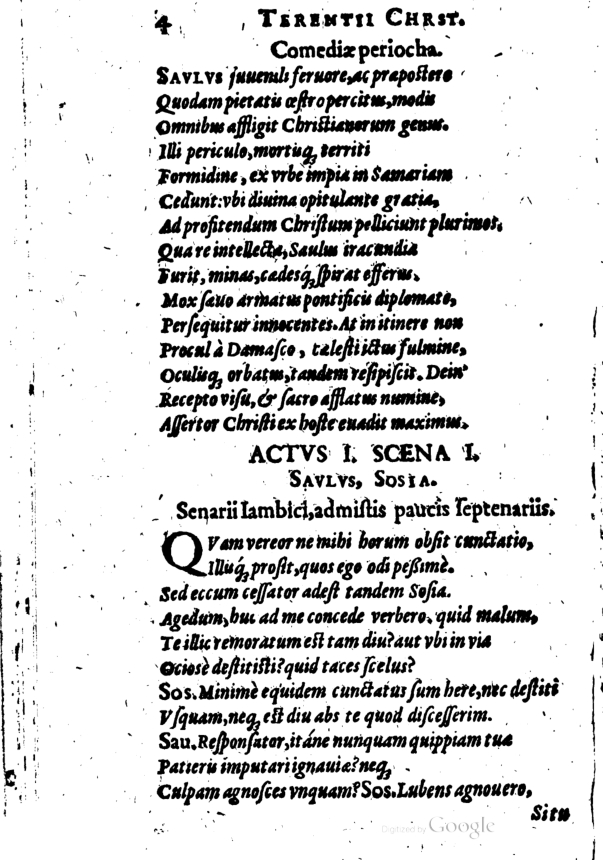 4 TERENTII CHRST.
Comediæ periocha.
SAVLVS juuenili feruore, ac præpostero
Quodam pietatis œstro percitus, modis
Omnibus affligit Christianorum genus.
Illi periculo, mortuq́; territi
Formidine, ex vrbe impia in Samariam
Cedunt: vbi diuina opitulante gratia,
Ad profitendum Christum pelliciunt plurimos.
Qua re intellecta, Saulus iracundia
Furit, minas, cædesq́; spirat efferus.
Mox sæuo armatus pontificis diplomate,
Persequitur innocentes. At in itinere non
Procul à Damasco, cælesti ictus fulmine,
Oculisq́; orbatus, tandem resipiscit. Dein'
Recepto visu, & sacro afflatus numine,
Assertor Christi ex hoste euadit maximus.
ACTVS I. SCENA I.
SAVLVS, SOSIA.
Senarii Iambici, admistis paucis septenariis.
QVam vereor ne mihi horum obsit cunctatio,
Illisq́; prosit, quos ego odi peßimè.
Sed eccum cessator adest tandem Sosia.
Agedum, huc ad me concede verbero. quid malum,
Te illic remoratum est tam diu? aut vbi in via
Ociosè destitisti? quid taces scelus?
Sos. Minimè equidem cunctatus sum here, nec destiti
Vsquam, neq; est diu abs te quod discesserim.
Sau. Responsator, itáne nunquam quippiam tuæ
Patieris imputari ignauiæ? neq;
Culpam agnosces vnquam? Sos. Lubens agnouero,
Situ
Digitized by Google